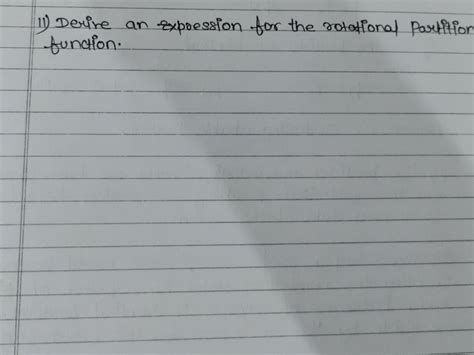 11) Derive an expression for the rotational Partition
function.